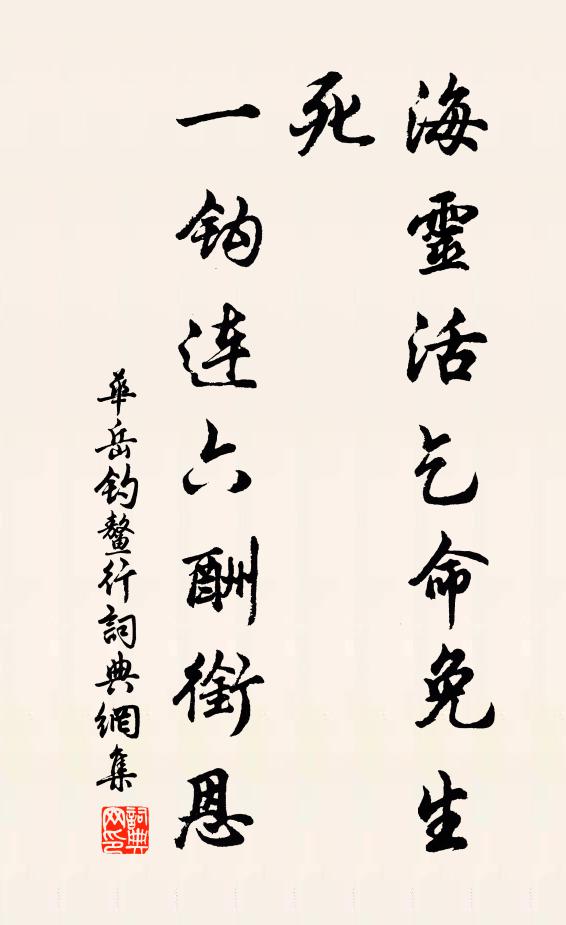 海靈活乞命免生
死
一鈎連六酬銜恩
華岳釣鼇行詞典網集
詞典
网印